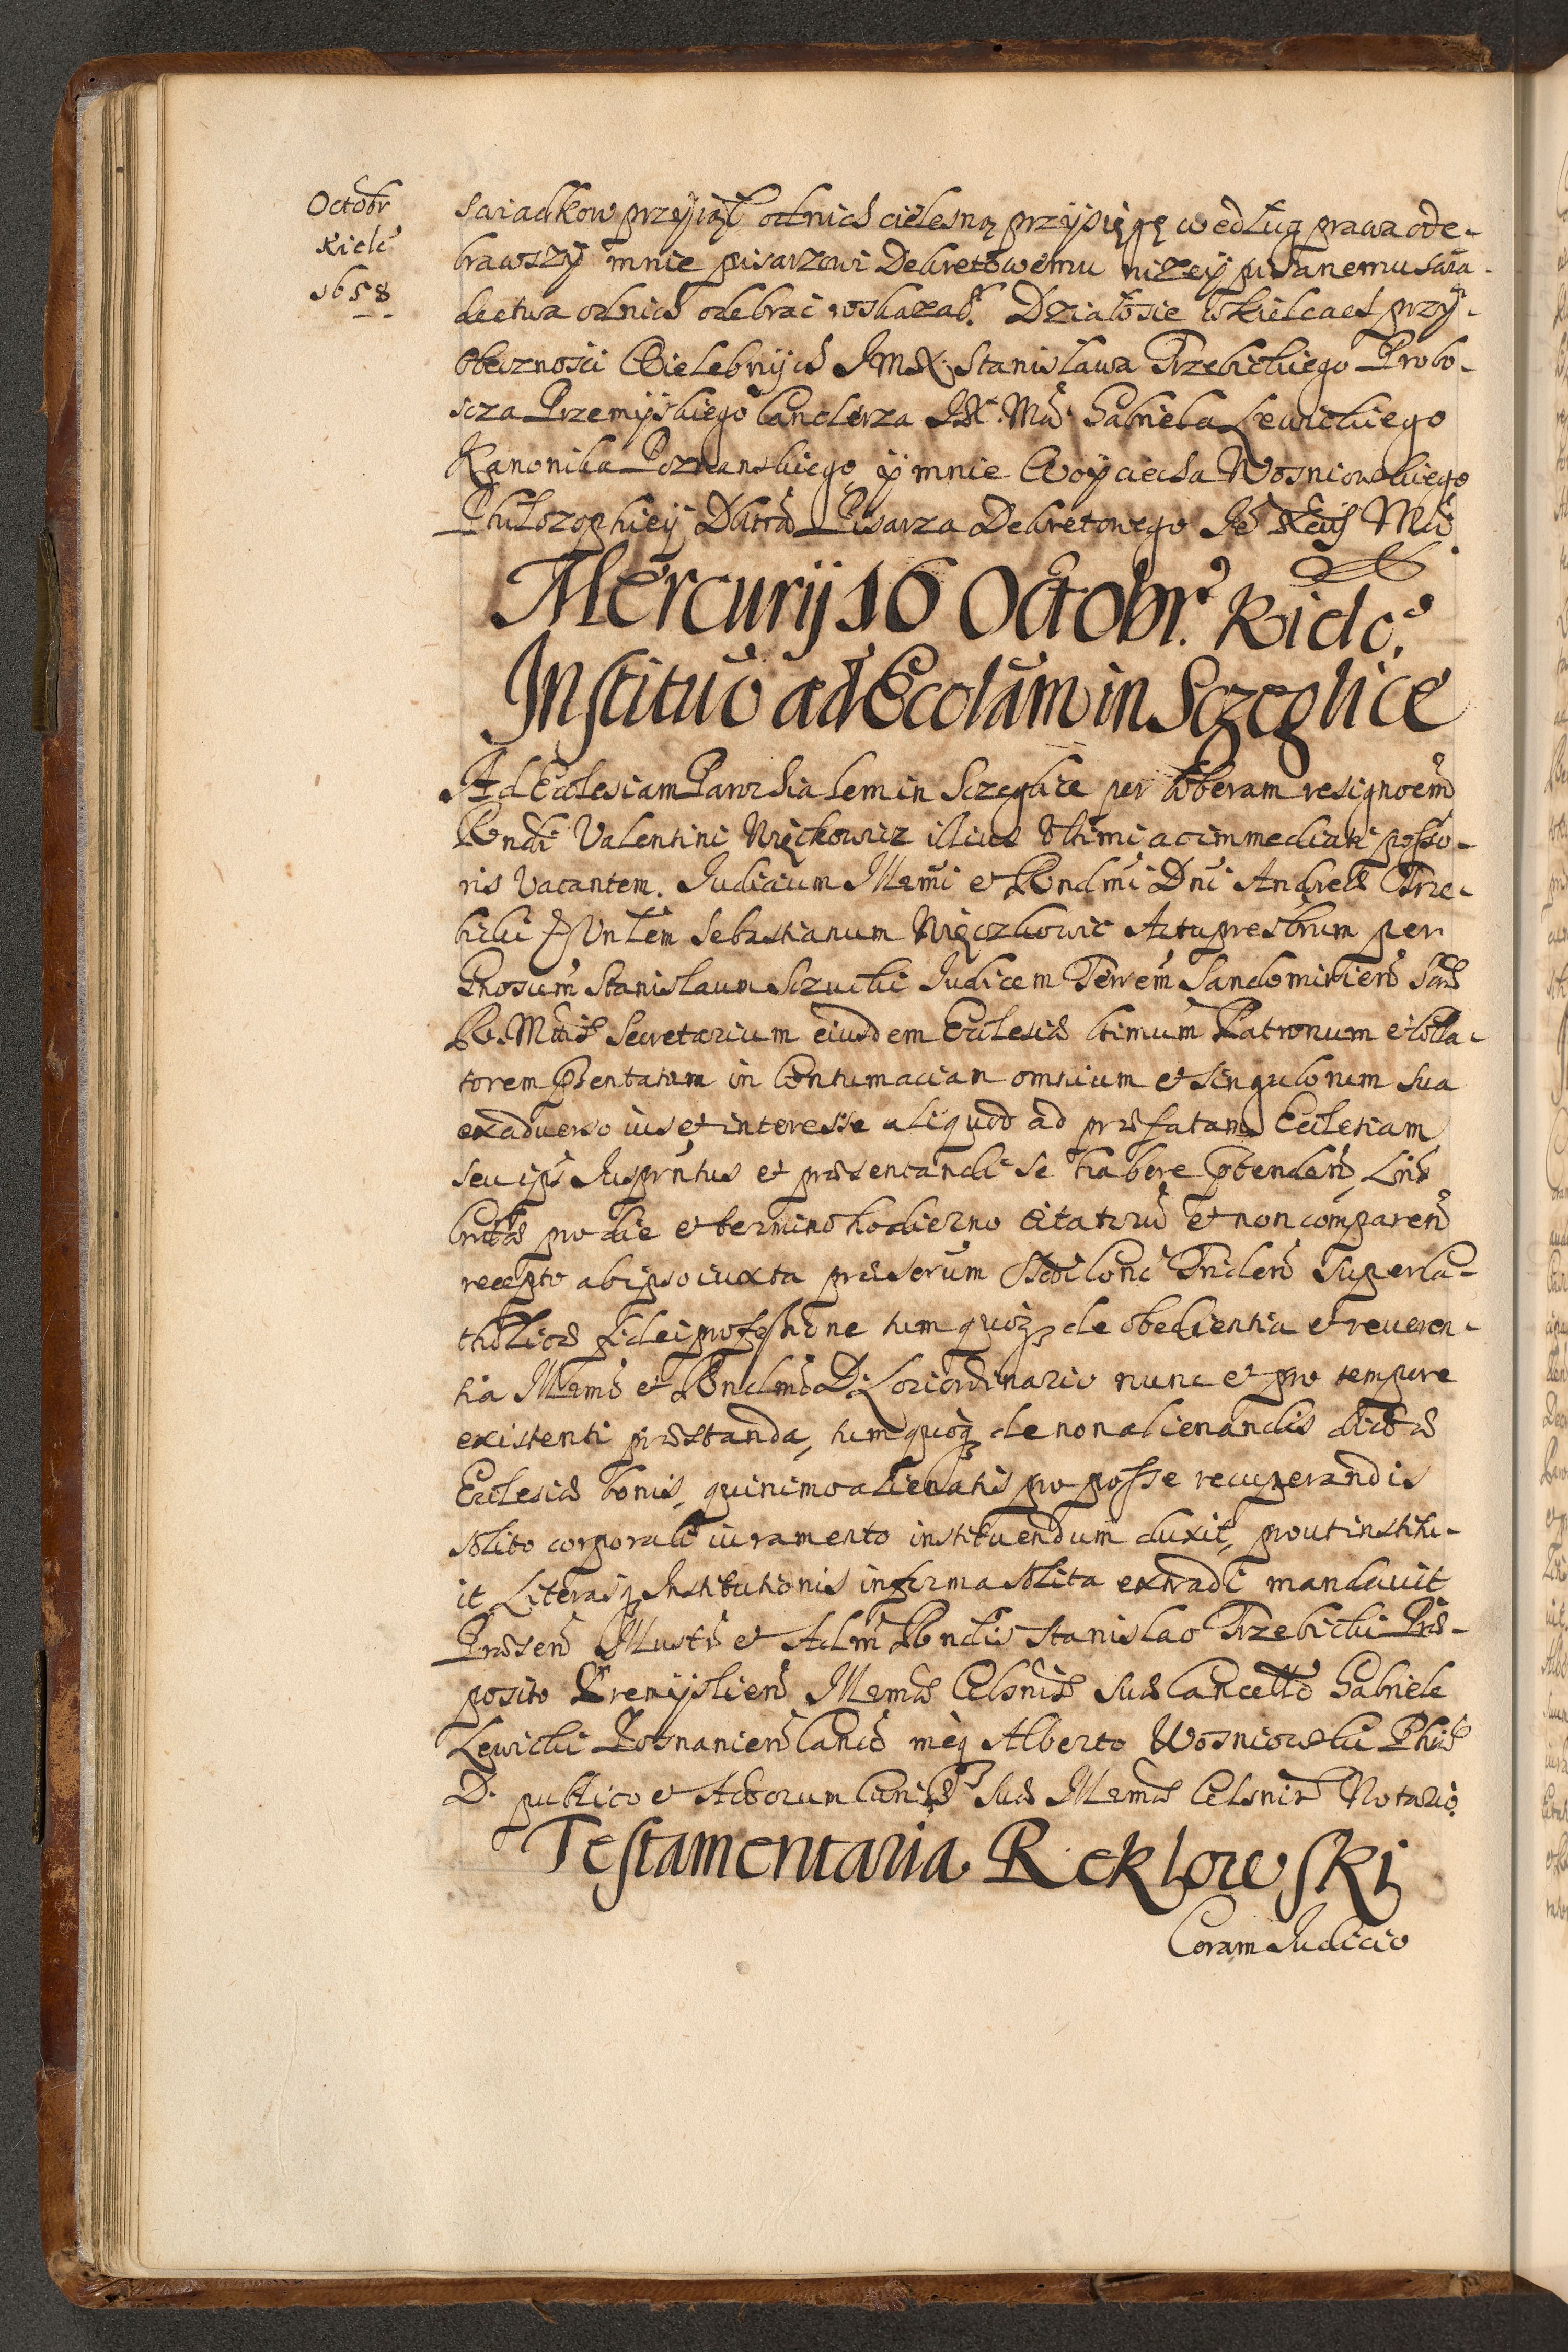 Octobr
Kielc
1658
swiadkow przyjął od nich cielesną przyşięgę według prawa ode-
brawszy mnie pisarzowi Dekretowemu nizey pisanemu swia-
dectwa od nich odebrac roskazał. Działosie w Kielcach przy
obecznosci Wielebnych JMX. Stanisława Trzebickiego Probo-
scza Przemyskiego Canclerza JX. Mci Gabriela Lewickiego
Kanonika Poznanskiego y mnie Woyciecha Wosniowskiego
Philozophiey Dktra Pisarza Dekretowego Je Xcey Mci
Mercurij 16 Octobr. Kielc.
Institutio ad Eccłam in Sczeglice
Ad Ecclesiam Parochialem in Sczeglice per liberam resignoem
Rndi Valentini Więckowicz illius Vltimi ac immediati posso-
ris Vacantem. Judicium Illmi et Rndmi Dni Andreæ Trze-
bicki Hnblem Sebastianum Więczkowic Artu presbrum per
Gnosum Stanislaum Sczucki Judicem Terrem Sandomirien Sac
R. Mttis Secretarium eiusdem Ecclesiæ ltimum Patronum et Colla-
torem Pntentatum in Contumaciam omnium et singulorum sua
ex adverso ius et interesse aliquod ad præfatam Ecclesiam
seu ips Juspntus et præsentandi se habere prtenden, Lris
Crtbs pro die et termino hodierno citatorum et non comparen
recepto ab ipso iuxta præscrum S Concilonc Triden super Ca-
tholicæ fidei professione tum quoq de obedientia et reveren-
tia Illmo et Rndmo D. Loci ordinario nunc et pro tempore
existenti præstanda, tum quoq de non alienandis dictæ
Ecclesiæ bonis, quinimo alienatis pro posse recuperandis
solito corporali iuramento instituendum duxit, prout institu-
it Literasq Institutionis in forma solita extradi mandavit
Præsen Illustri et Adm Rndis Stanislao Trzebicki Præ-
posito Premyslien Illmæ Celsnis Suæ Cancellro Gabriele
Lewicki Posnanien Canco meq Alberto Wosniowski Phiæ
D. publico et Actorum Curiæ Suæ Illmæ Celsnis Notario.
Testamentaria Reklowski
Coram Judicio